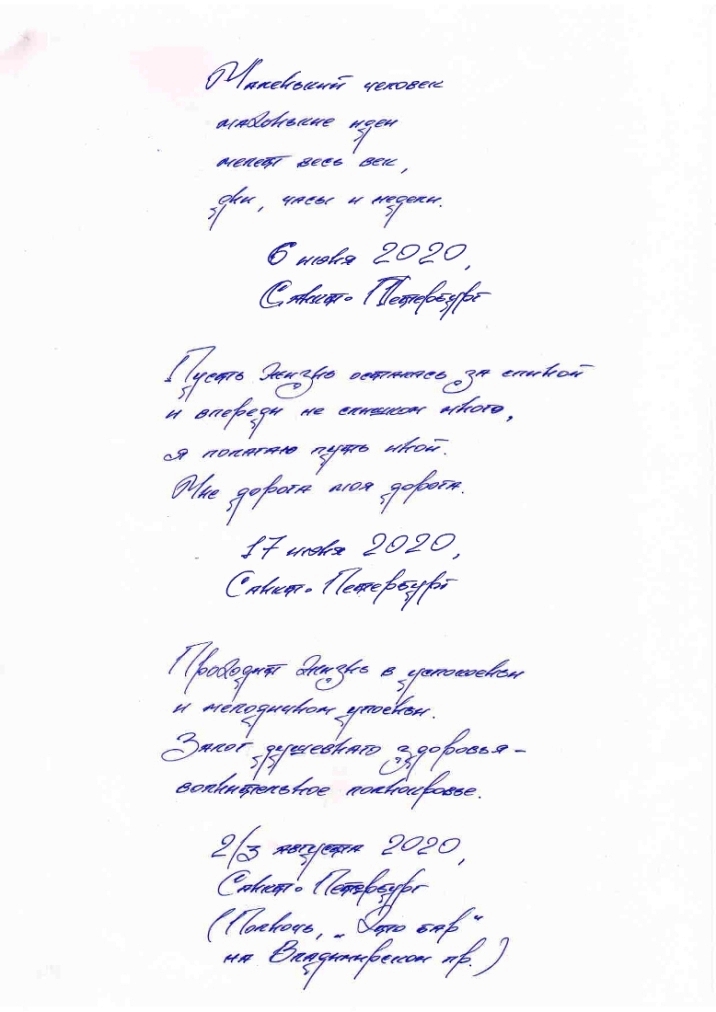 Маленький человек
маленькие идеи
мелет весь век,
дни, часы и недели.
6 июня 2020,
Санкт-Петербург
Пусть жизнь осталась за спиной
и впереди не слишком много,
я полагаю путь иной.
Мне дорога моя дорога.
17 июня 2020,
Санкт-Петербург
Проходит жизнь в успокоеньи
и мелодичном упоеньи.
Залог душевнаго здоровья –
волнительное полнокровье.
2/3 августа 2020,
Санкт-Петербург
(Полночь, „Это бар“
на Владимирском пр.)